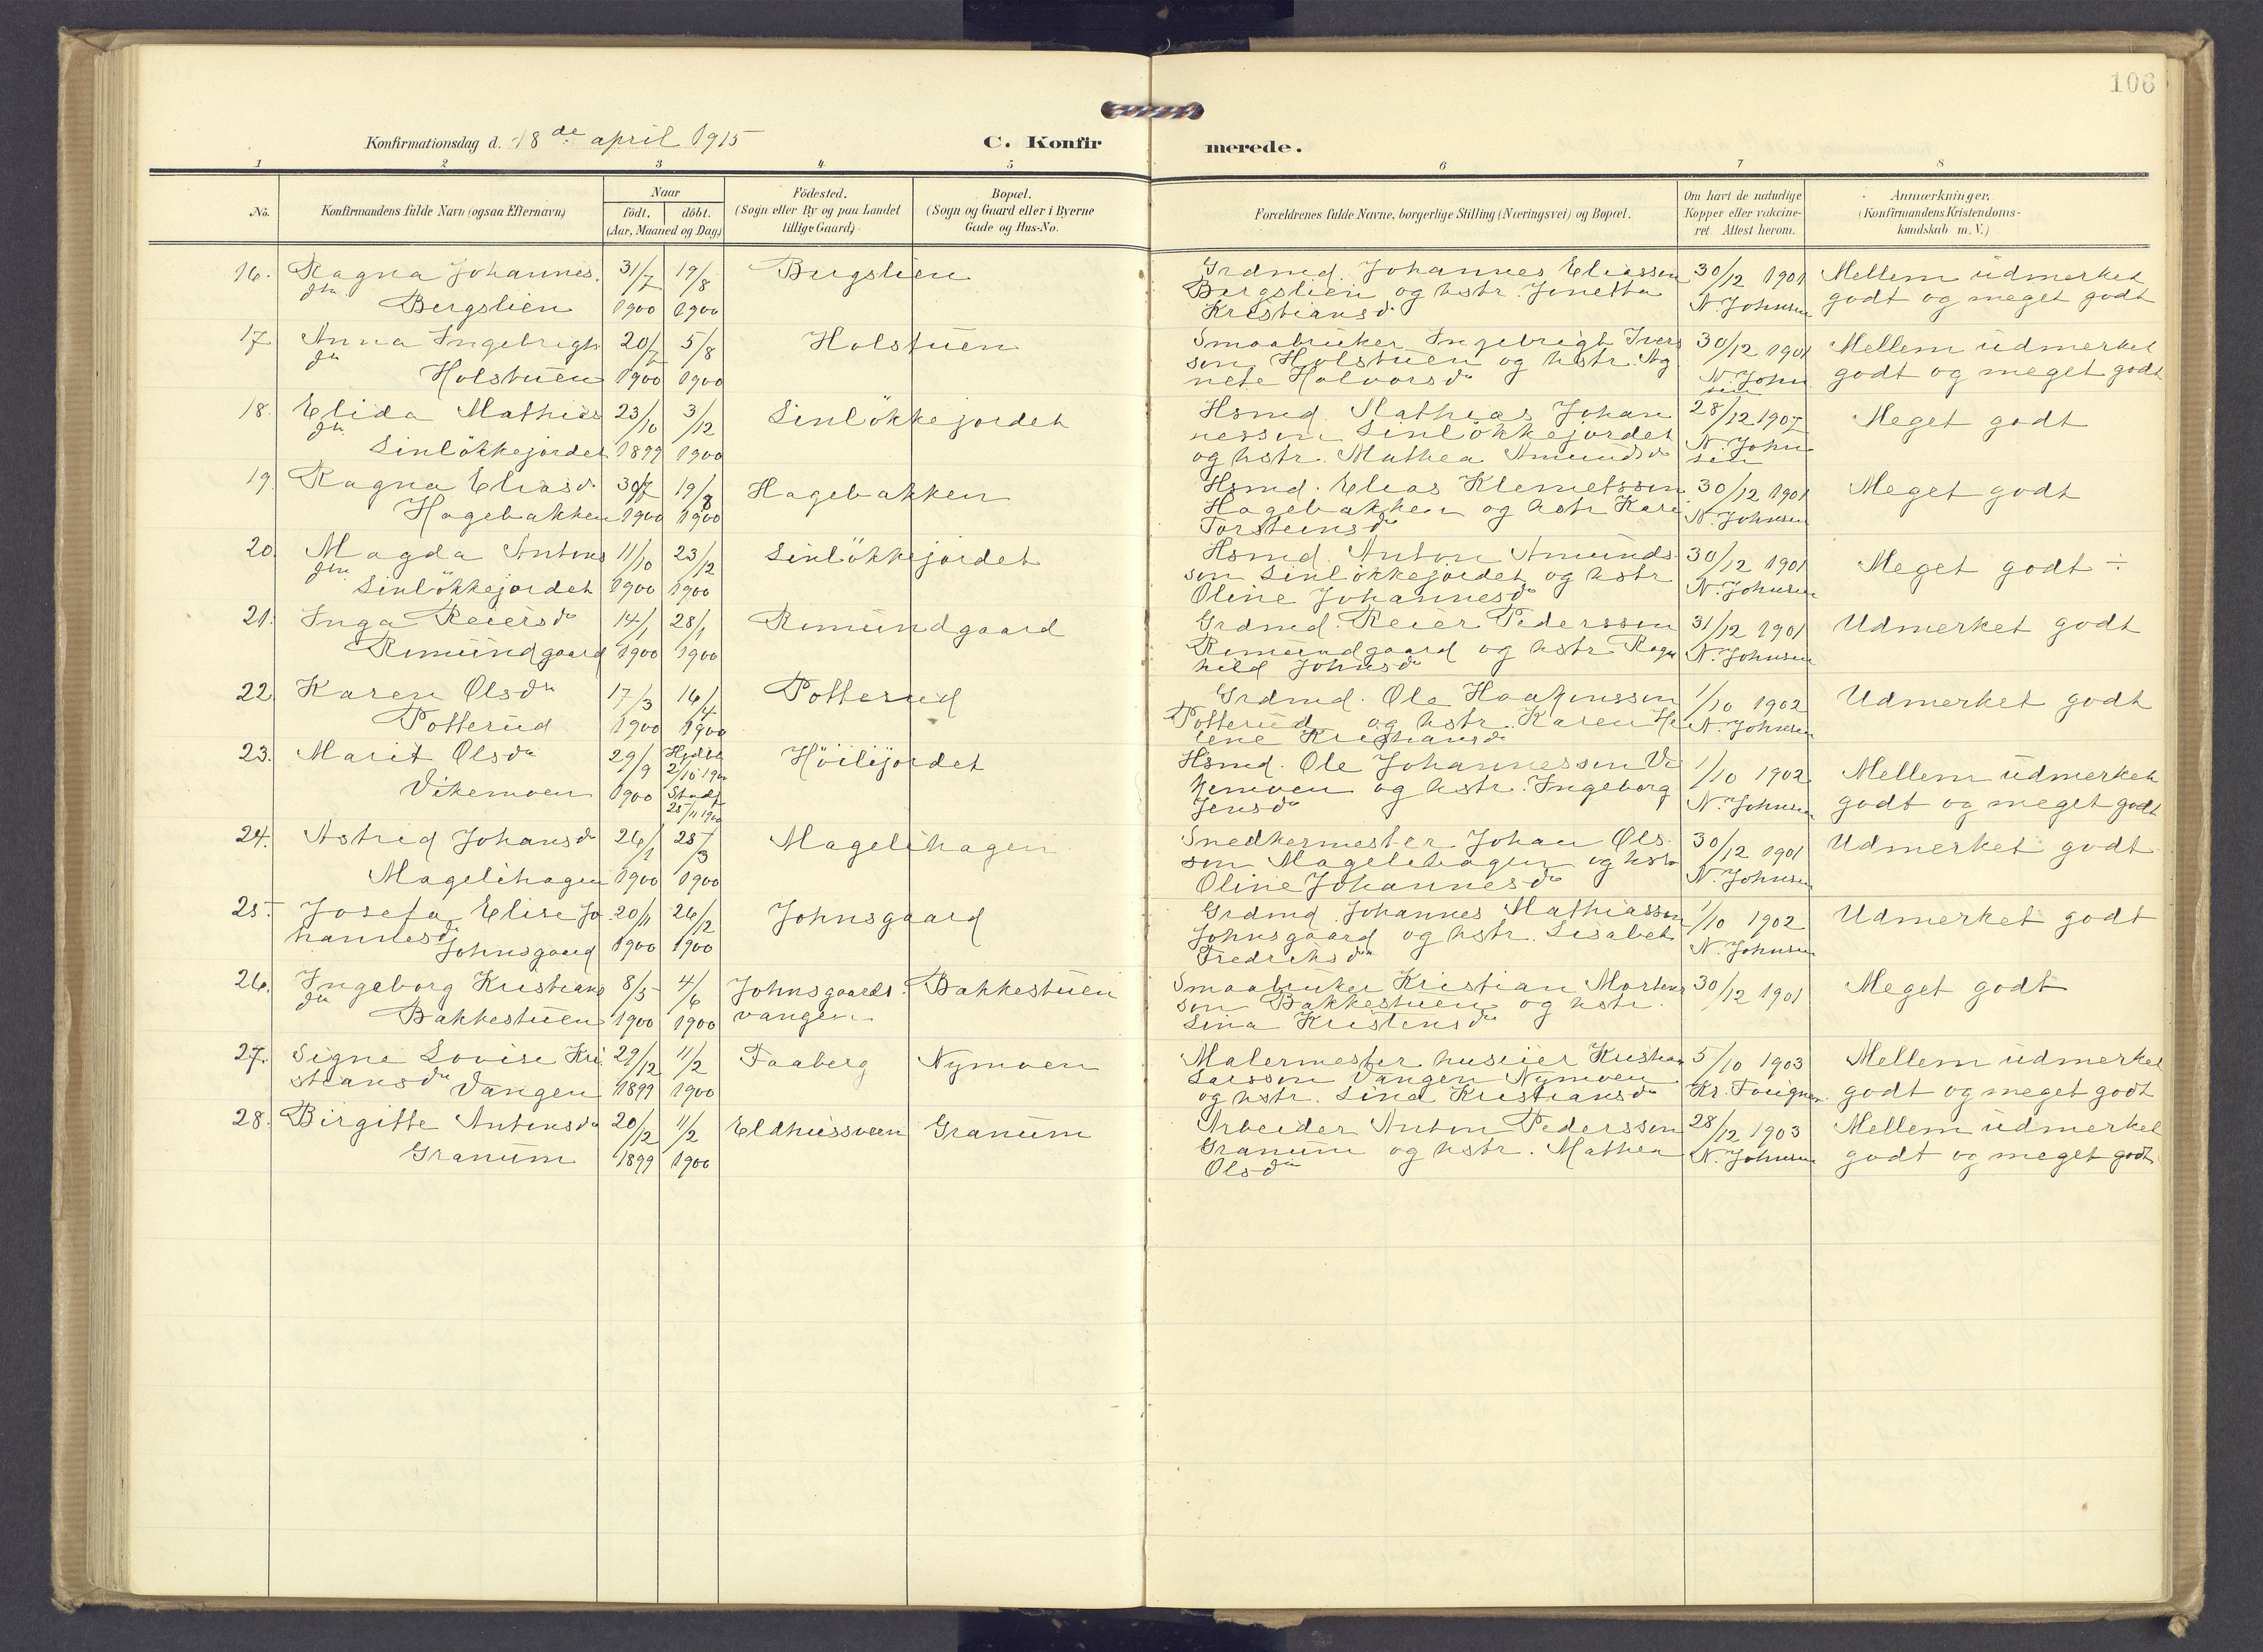 106
Konfirmationsdag d. 18de april 1915
C. Konfirmerede.
1 2 3 4 5 6 7 8
No.
Konfirmandens fulde Navn (ogsaa Efternavn)
Naar
födt. döbt.
(Aar, Maaned og Dag)
Födested.
(Sogn eller By og paa Landet
tillige Gaard)
Bopæl.
(Sogn og Gaard eller i Byerne
Gade og Hus-No.
Forældrenes fulde Navne, borgerlige Stilling (Næringsvei) og Bopæl.
Om havt de naturlige
Kopper eller vakcine-
ret Attest herom.
Anmærkninger.
(Konfirmandens Kristendoms-
kundskab m. V.)
16. Ragna Johannes. 31/7 19/8 Bergslien Grdmd. Johannes Eliassen 30/12 1901 Mellem udmerket
dtr. Bergslien 1900 1900 Bergslien og hstr. Jonetta N. Johnsen godt og meget godt
Kristiansdr
17 Anna Ingebrigts 20/7 5/8 Holstuen Smaabruker Ingebrigt Ivers 30/12 1901 Mellem udmerket
dtr Holstuen 1900 1900 son Holstuen og hstr. Ag N. John godt og meget godt
nete Halvorsdr sen
18. Elida Mathias 23/10 3/12 Sinlökkejordet Hsmd. Mathias Johan 28/12 1907 Meget godt
dtr. Sinlökkejordet 1899 1900 nesson Sinlökkejordet N. John
og hstr. Mathea Amundsdr sen
19. Ragna Eliasdr 30/7 19/8 Hagebakken Hsmd. Elias Klemetsson 30/12 1901 Meget godt
Hagebakken 1900 1900 Hagebakken og hstr Kari N. Johnsen
Torsteinsdr
20. Magda Antons 11/10 23/12 Sinlökkejordet Hsmd. Anton Amunds 30/12 1901 Meget godt ÷
dtr Sinlökkejordet 1900 1900 son Sinlökkejordet og hstr N. Johnsen
Oline Johannesdr
21. Inga Reiersdr 14/1 28/1 Rimundgaard Grdmd. Reier Pedersson 31/12 1901 Udmerket godt
Rimundgaard 1900 1900 Rimundgaard og hstr Ragn N. Johnsen
hild Johnsdr
22. Karen Olsdtr 17/3 16/4 Potterud Grdmd. Ole Haakensson 1/10 1902 Udmerket godt
Potterud 1900 1900 Potterud og hstr. Karen He N. Johnsen
lene Kristiansdr
23. Marit Olsdr 29/9 Hjdöbt Höilijordet Hsmd. Ole Johannesson Vi 1/10 1902 Mellem udmerket
Vikemoen 1900 2/10 1900 kemoen og hstr. Ingeborg N. Johnsen godt og meget godt
Stadf 25/11 1900 Jensdr
24. Astrid Johansdr 26/1 25/3 Magelihagen Snedkermester Johan Ols. 30/12 1901 Udmerket godt
Magelihagen 1900 1900 son Magelihagen og hstr N. Johnsen
Oline Johannesdr
25. Josefa Elise Jo 20/11 26/12 Johnsgaard Grdmd. Johannes Mathiasson 1/10 1902 Udmerket godt
hannesdr Johnsgaard 1900 1900 Johnsgaard og hstr. Lisabet N. Johnsen
Fredriksdr
26. Ingeborg Kristians 8/5 4/6 Johnsgaards. Bakkestuen Smaabruker Kristian Mortens 30/12 1901 Meget godt
dtr Bakkestuen 1900 1900 vangen son Bakkestuen og hstr.
Lina Kristensdr
27. Signe Lovise Kri 29/12 11/2 Faaberg Nymoen Malermester huseier Kristian 5/10 1903 Mellem udmerket
stiansdr Vangen 1899 1900 Larsson Vangen Nymoen Kr. Fougner. godt og meget godt
og hstr. Lina Kristiansdr
28. Birgitte Antonsdr 20/12 11/2 Eldhussveen Granum Arbeider Anton Pedersson 28/12 1903 Mellem udmerket
Granum 1899 1900 Granum og hstr. Mathea N. Johnsen godt og meget godt
Olsdr